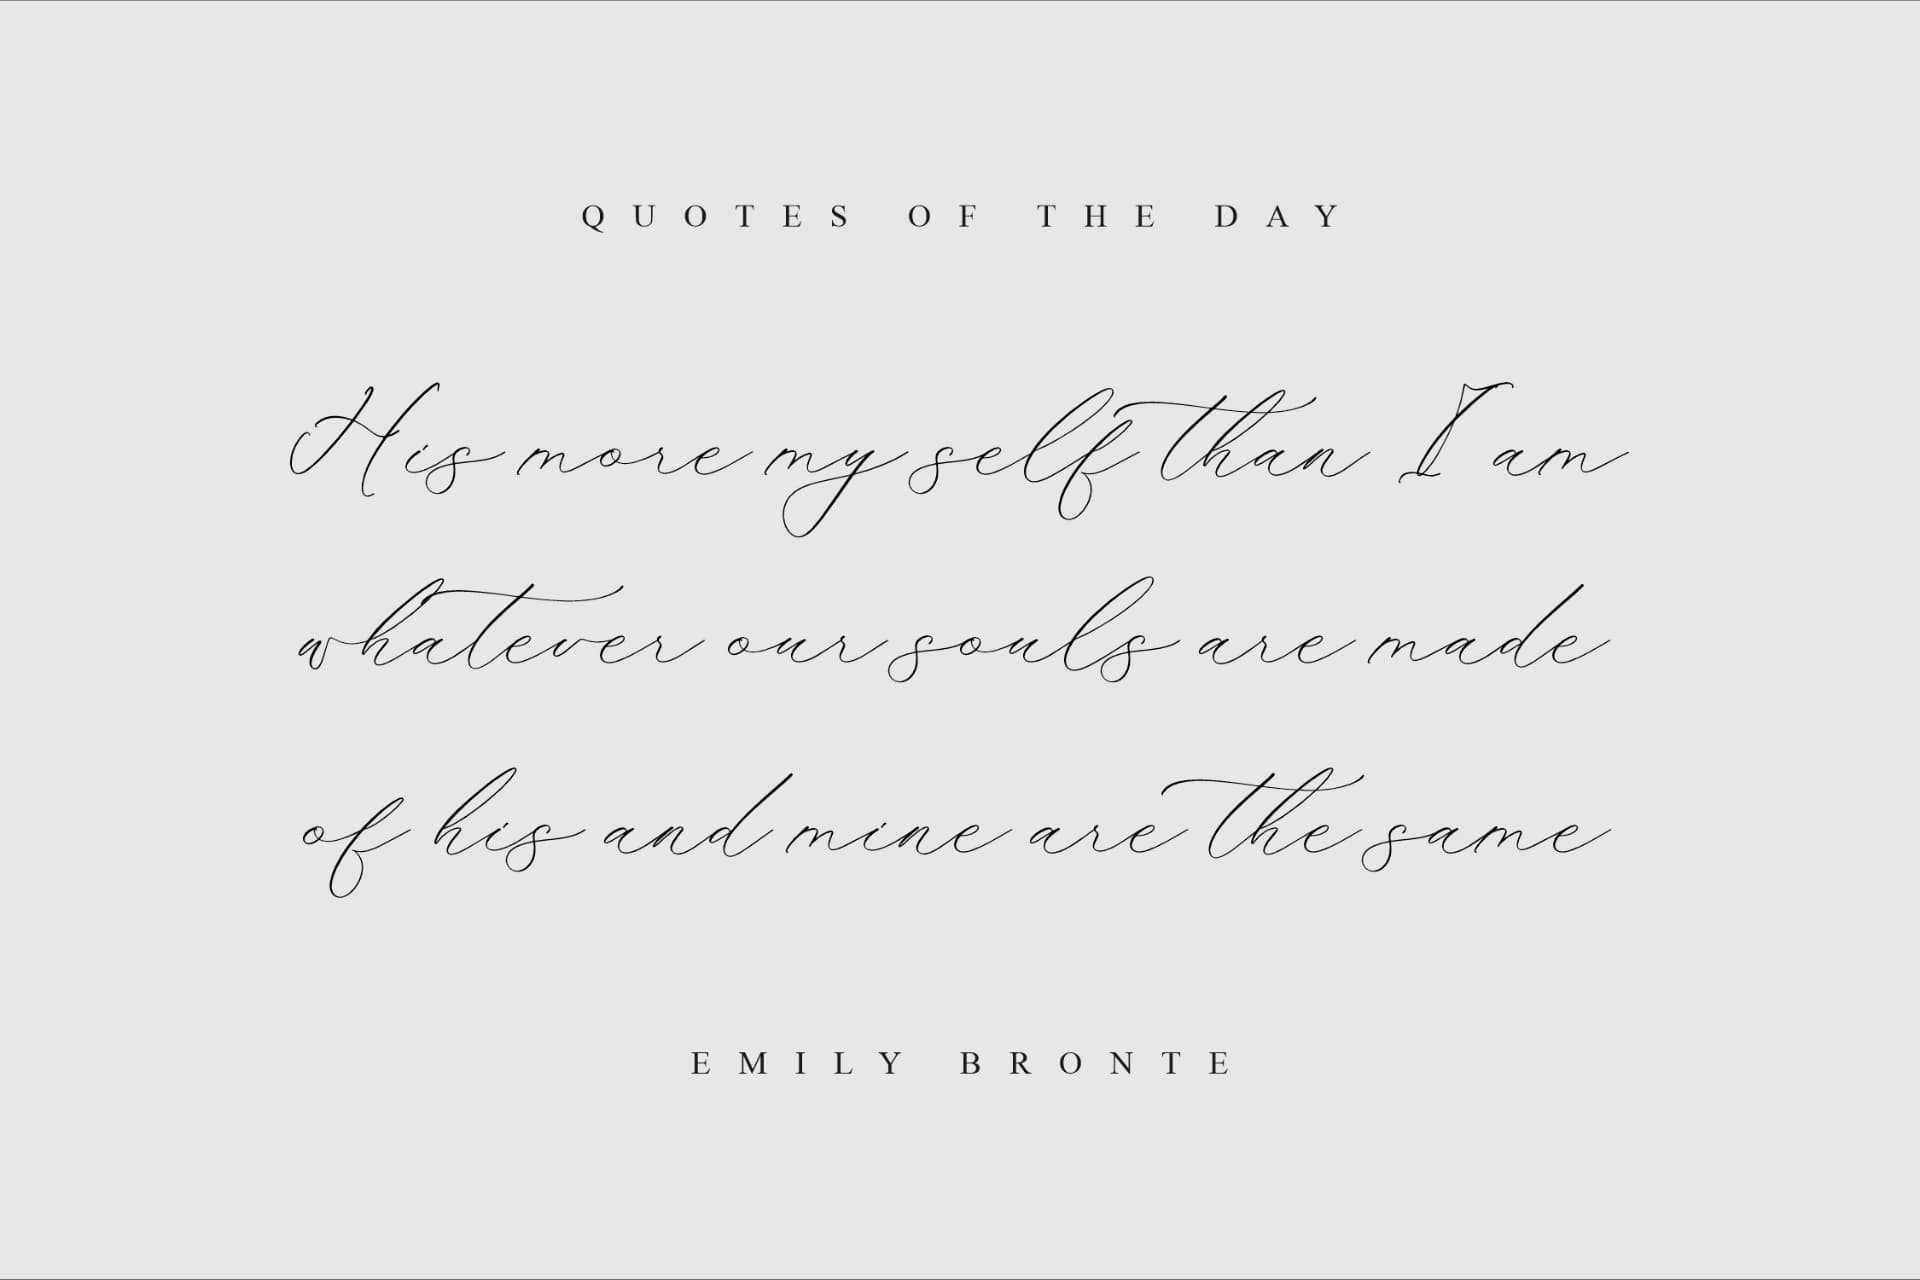 QUOTES OF THE DAY
His more my self than I am
whatever our souls are made
of his and mine are the same
EMILY BRONTE